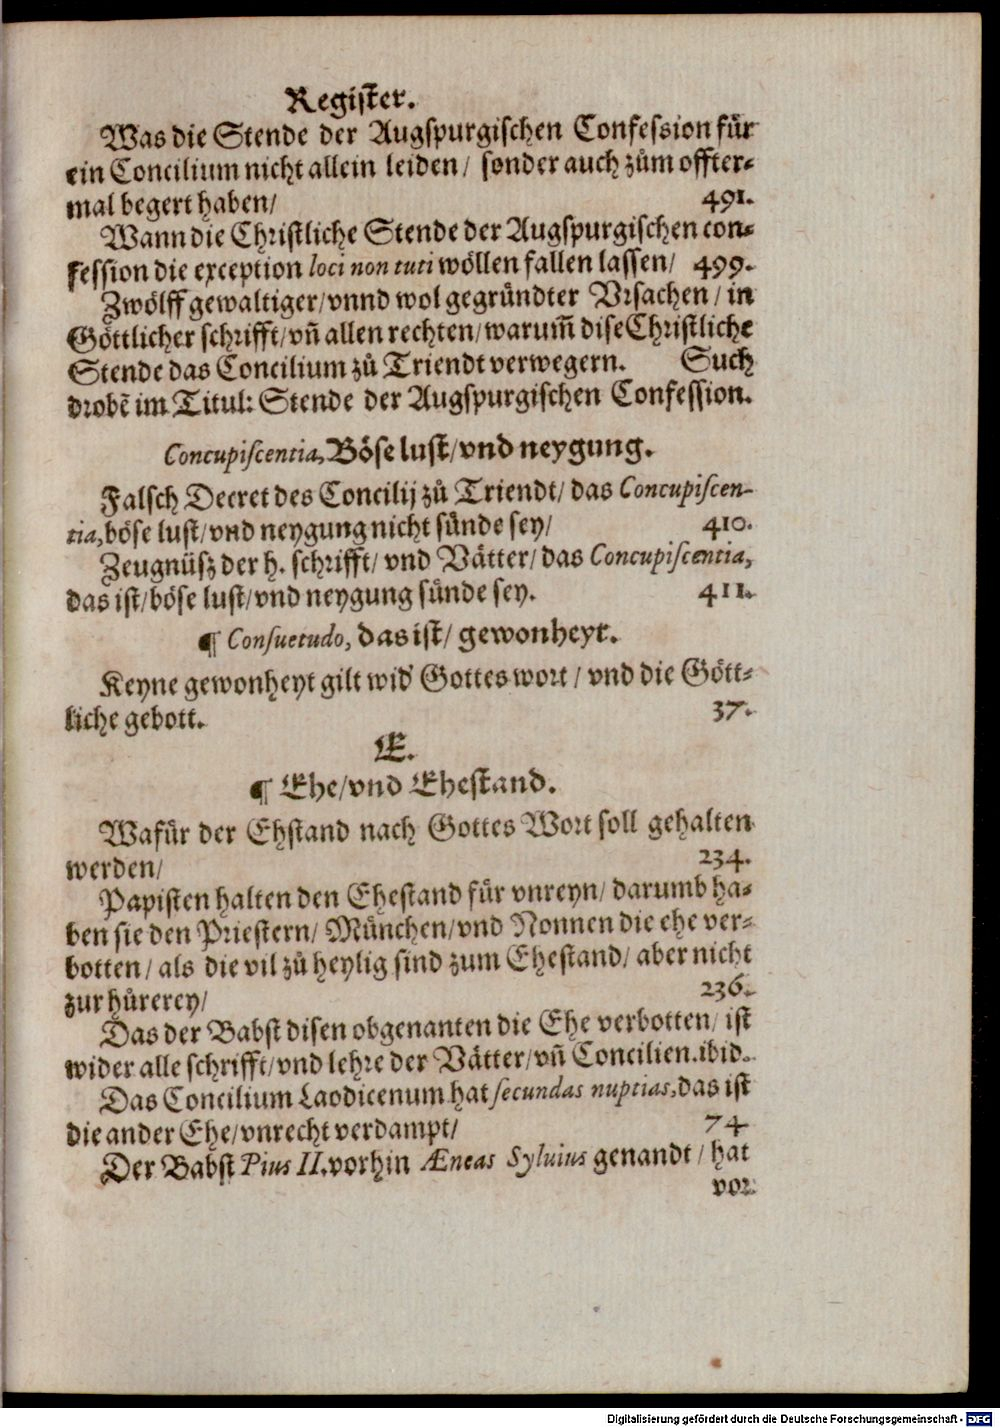 Register.
Was die Stende der Augspurgischen Confession für
ein Concilium nicht allein leiden/ sonder auch zům offter⸗
mal begert haben/ 491.
Wann die Christliche Stende der Augspurgischen con⸗
fession die exception loci non tuti wöllen fallen lassen/ 499.
Zwölff gewaltiger/ vnnd wol gegründter Vrsachen/ in
Göttlicher schrifft/ vñ allen rechten/ warum̃ dise Christliche
Stende das Concilium zů Triendt verwegern. Such
drobẽ im Titul: Stende der Augspurgischen Confession.
Concupiscentia, Böse lust/ vnd neygung.
Falsch Decret des Concilij zů Triendt/ das Concupiscen-
tia, böse lust/ vnd neygung nicht sünde sey/ 410.
Zeugnüsz der h. schrifft/ vnd Vätter/ das Concupiscentia,
das ist/ böse lust/ vnd neygung sünde sey. 411.
¶ Consuetudo, das ist/ gewonheyt.
Keyne gewonheyt gilt wid' Gottes wort/ vnd die Gött⸗
liche gebott. 37.
E.
¶ Ehe/ vnd Ehestand.
Wafür der Ehstand nach Gottes Wort soll gehalten
werden/ 234.
Papisten halten den Ehestand für vnreyn/ darumb ha⸗
ben sie den Priestern/ München/ vnd Nonnen die ehe ver⸗
botten/ als die vil zů heylig sind zum Ehestand/ aber nicht
zur hůrerey/ 236.
Das der Babst disen obgenanten die Ehe verbotten/ ist
wider alle schrifft/ vnd lehre der Vätter/ vñ Concilien. ibid.
Das Concilium Laodicenum hat secundas nuptias, das ist
die ander Ehe/ vnrecht verdampt/ 74
Der Babst Pius II. vorhin Æneas Sylvius genandt/ hat
vor⸗
Digitalisierung gefördert durch die Deutsche Forschungsgemeinschaft - DFG